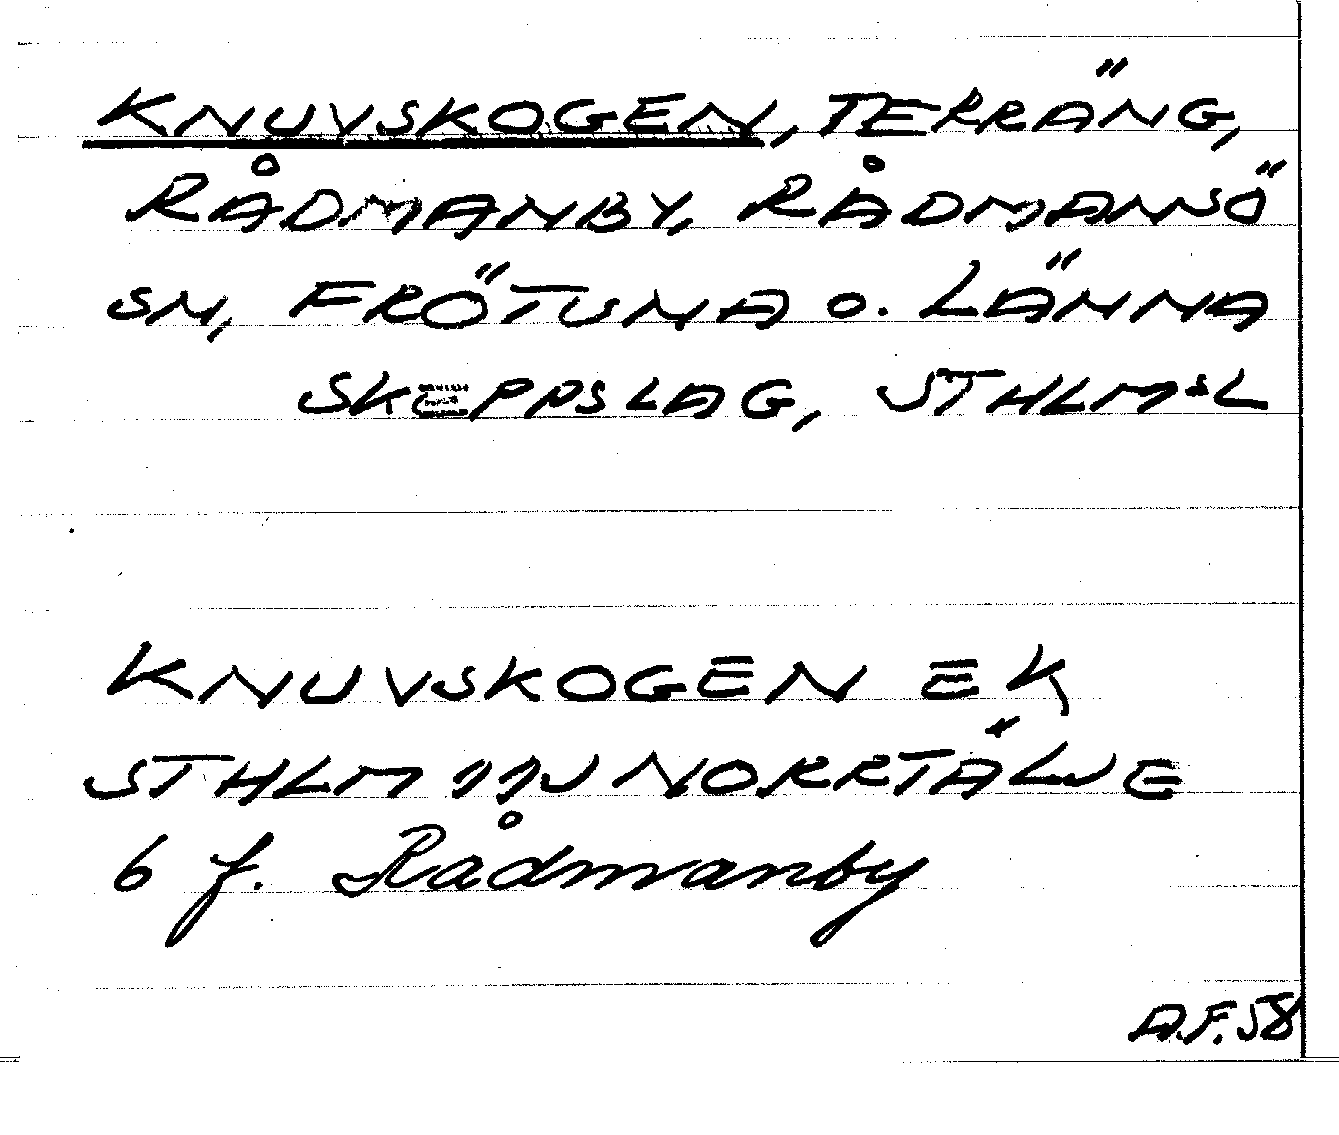 KNUVSKOGEN, TERRÄNG,
RÅDMANBY, RÅDMANSÖ
SN, FRÖTUNA o. LÄNNA
SKEPPSLAG, STHLMSL
KNUVSKOGEN EK
STHLM 11J NORRTÄLJE
6 f. Rådmanby
A.F. 58